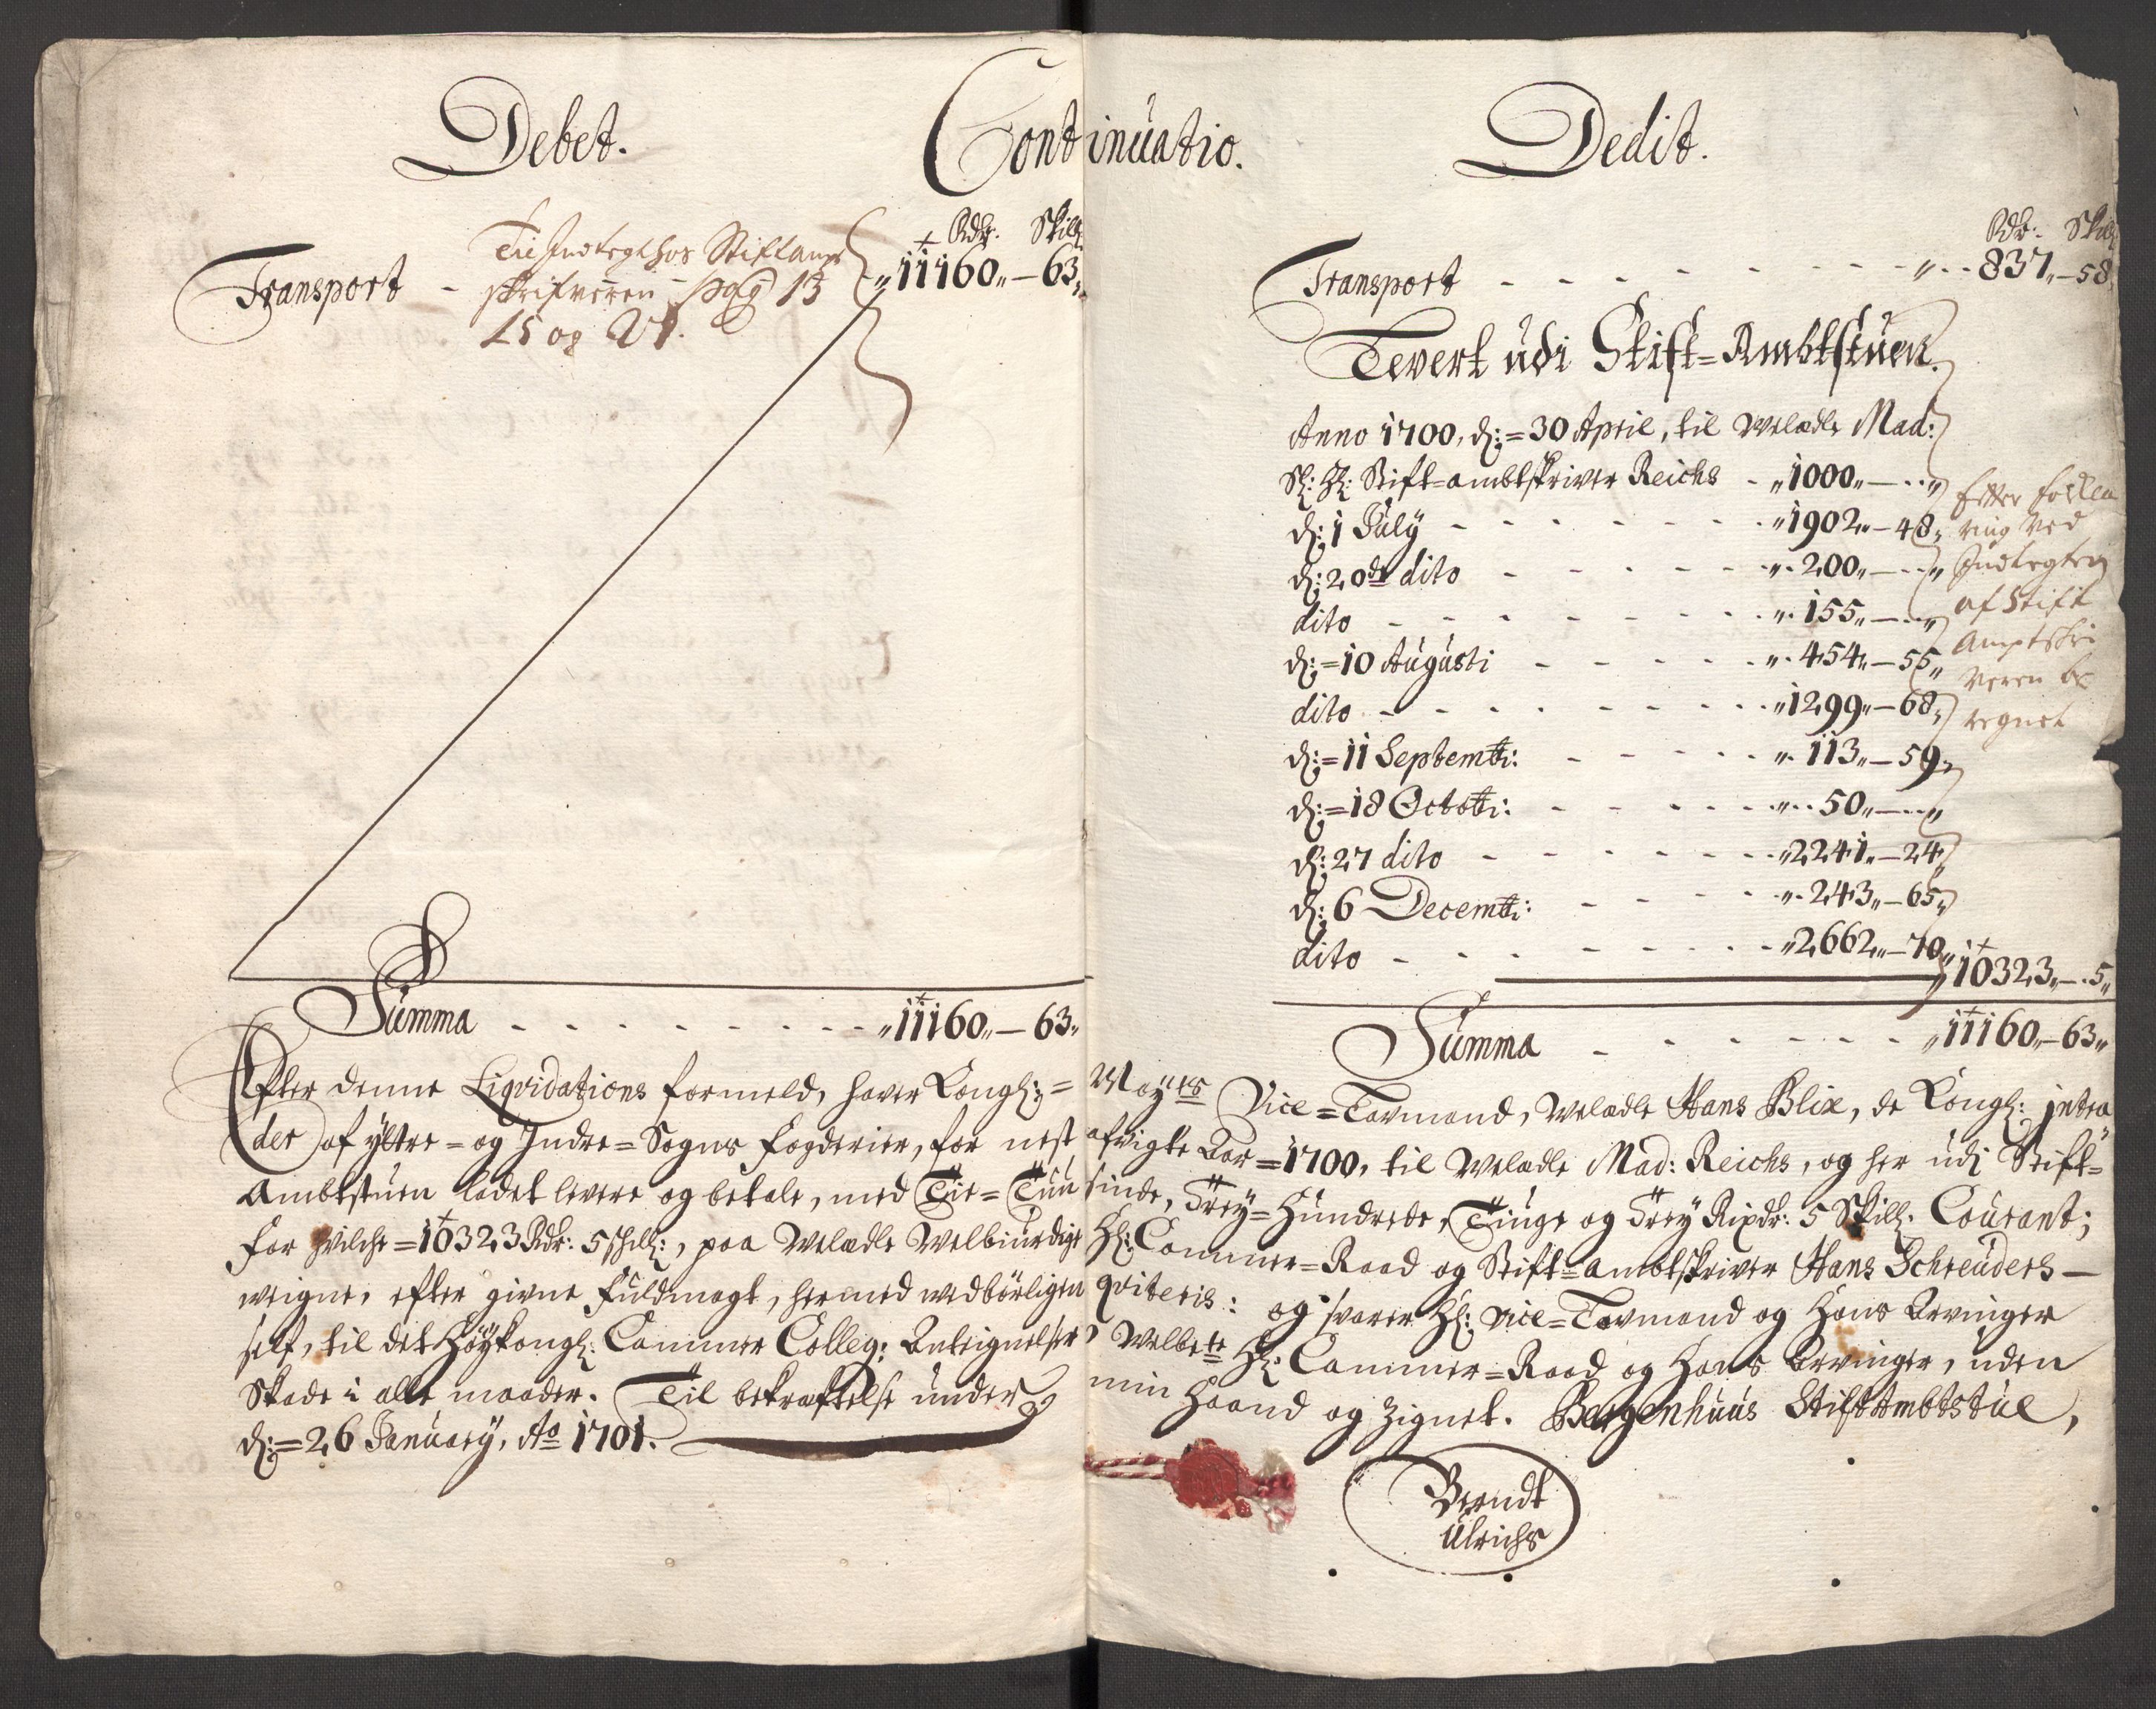 Debet.
Continuatio.
Dedit.
Rdr. Skill
Transport - Til Indtegt hos Stiftamt
skrifveren pag 13
15 og 21.
11160 - 63
Rdr. Skill
Transport - - - 837 - 58
Levert udi Stift=Ambtstuen.
Anno 1700, d: = 30 April, til Velædle Mad:
Sl: Hr: Stift=ambtskriver Reichs - 1000 -
d: 1 July - - - 1902 - 48
d: 20de dito - - - 200 -
dito - - - 155 -
d: = 10 Augusti - - - 454 - 55
dito - - - 1299 - 68
d: = 11 Septembr: - - - 113 - 59
d: = 18 Octobr: - - - 50 -
d: 27 dito - - - 2241 - 24
d: 6 Decembr: - - - 243 - 65
dito - - - 2662 - 70
10323 - 5
Efter
ring ved
Indtegten
af Stift
Amptskri
veren be
regnet
Summa - - - 11160 - 63
Summa - - - 11160 - 63
Efter denne Liqvidations formeld, haver Kongl: = Mayts Vice=Lavmand, Velædle Hans Blix, de Kongl: intra
der af yttre= og Indre=Sogns fogderier, for nest afvigte Aar = 1700, til Velædle Mad: Reichs, og her udi Stift=
Ambtstuen ladet levere og betale, med Tie=Tuusinde, Trey=Hundrede, Tiuge og Trey Rixdr: 5 Skill: Courant;
for hvilche = 10323 Rdr: 5 skill:, paa Velædle Velbiurdige Hr: Cammer=Raad og Stift=ambtskriver Hans Schreuders -
veigne, efter givne fuldmagt, hermed vedbörligen qviteris: og svarer Hr: Vice=Lavmand og Hans Arvinger
self, til det Höykongl: Cammer Colleg: Antegnelser, Velbete Hr: Cammer=Raad og Hans Arvinger, uden
Skade i alle maader. Til bekræftelse under min Haand og Zignet. Bergenhuus StiftAmbtstue,
d: = 26 January, Ao 1701.
Berndt
Ulrichs